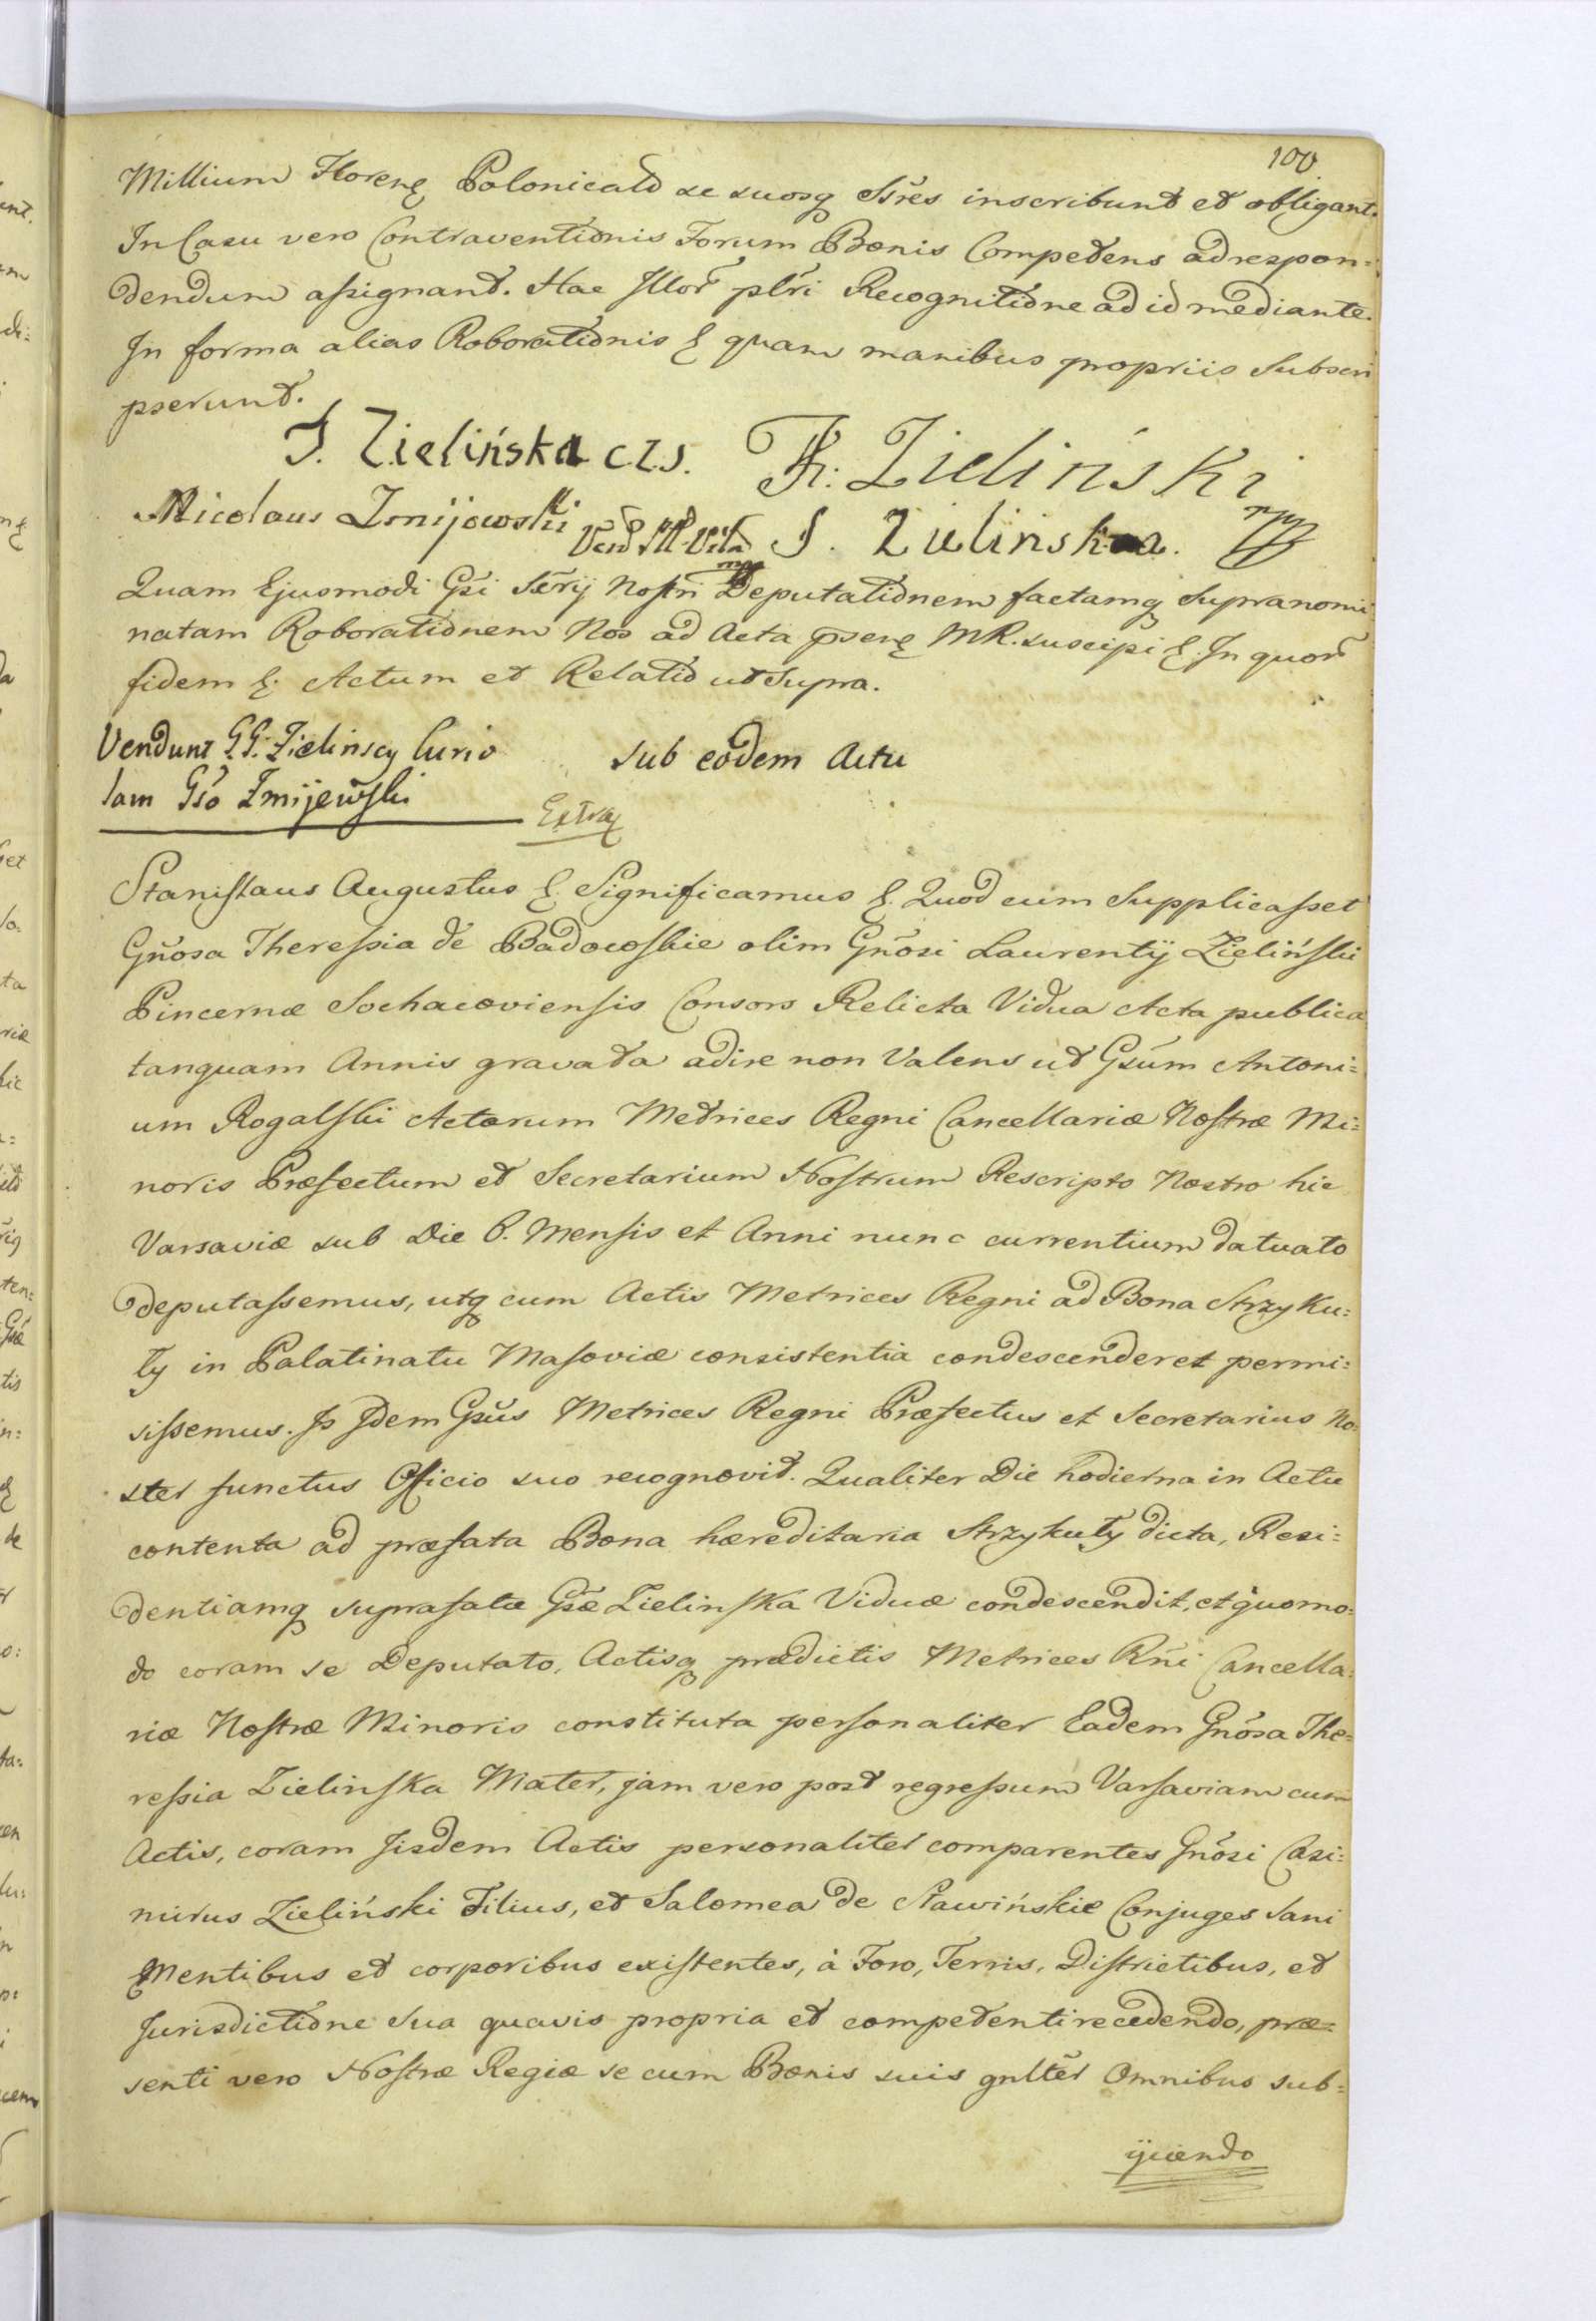 100.
Millium Floren Polonicaĺ se suosq Ssres inscribunt et obligant.
In Casu vero Contraventionis Forum Bonis Competens ad respon=
dendum assignant. Hac Illor plri Recognitione ad id mediante.
In forma alias Roborationis & quam manibus propriis Subscri
pserunt.
T. Zielińska c.z.s. Zieliński
Nicolaus Zmijewski S. Zielinska.
Quam Ejusmodi Gsi Srrij Nostri Deputationem factamq Supranomi
natam Roborationem Nos ad Acta psen MR. suscipi & In quor
fidem & Actum et Relatio ut Supra.
Vendunt G.G. Zielinscy Curio
sub eodem Actu
lam Gso Zmijewski
Extra
Stanislaus Augustus & Significamus & Quod cum Supplicasset
Gnosa Theressia de Badowskie olim Gnosi Laurentij Zieliński
Pincernæ Sochacoviensis Consors Relicta Vidua Acta publica
tanquam Annis gravata adire non Valens ut Gsum Antoni=
um Rogalski Actorum Metrices Regni Cancellariæ Nostræ Mi=
noris Præfectum et Secretarium Nostrum Rescripto Nostro hic
Varsaviæ sub Die 6. Mensis et Anni nunc currentium datuato
deputassemus, utq cum Actis Metrices Regni ad Bona Strzyku=
ły in Palatinatu Masoviæ consistentia condescenderet permi=
sissemus. Is Idem Gsus Metrices Regni Præfectus et Secretarius No=
ster functus Officio suo recognovit. Qualiter Die hodierna in Actu
contenta ad præfata Bona hæreditaria Strzykuły dicta, Resi=
dentiamq suprafatæ Gsæ Zielinska Viduæ condescendit, et quomo=
do coram se Deputato, Actisq prædictis Metrices Rñi Cancella=
riæ Nostræ Minoris constituta personaliter Eadem Gnosa The=
ressia Zielinska Mater, jam vero post regressum Varsaviam cum
Actis, coram Iisdem Actis personaliter comparentes Gnosi Casi=
mirus Zieliński Filius, et Salomea de Sławińskie Conjuges Sani
Mentibus et corporibus existentes, à Foro, Terris, Districtibus, et
Jurisdictione Sua quavis propria et competenti recedendo, præ=
senti vero Nostræ Regiæ se cum Bonis suis gnlter Omnibus sub=
ijciendo